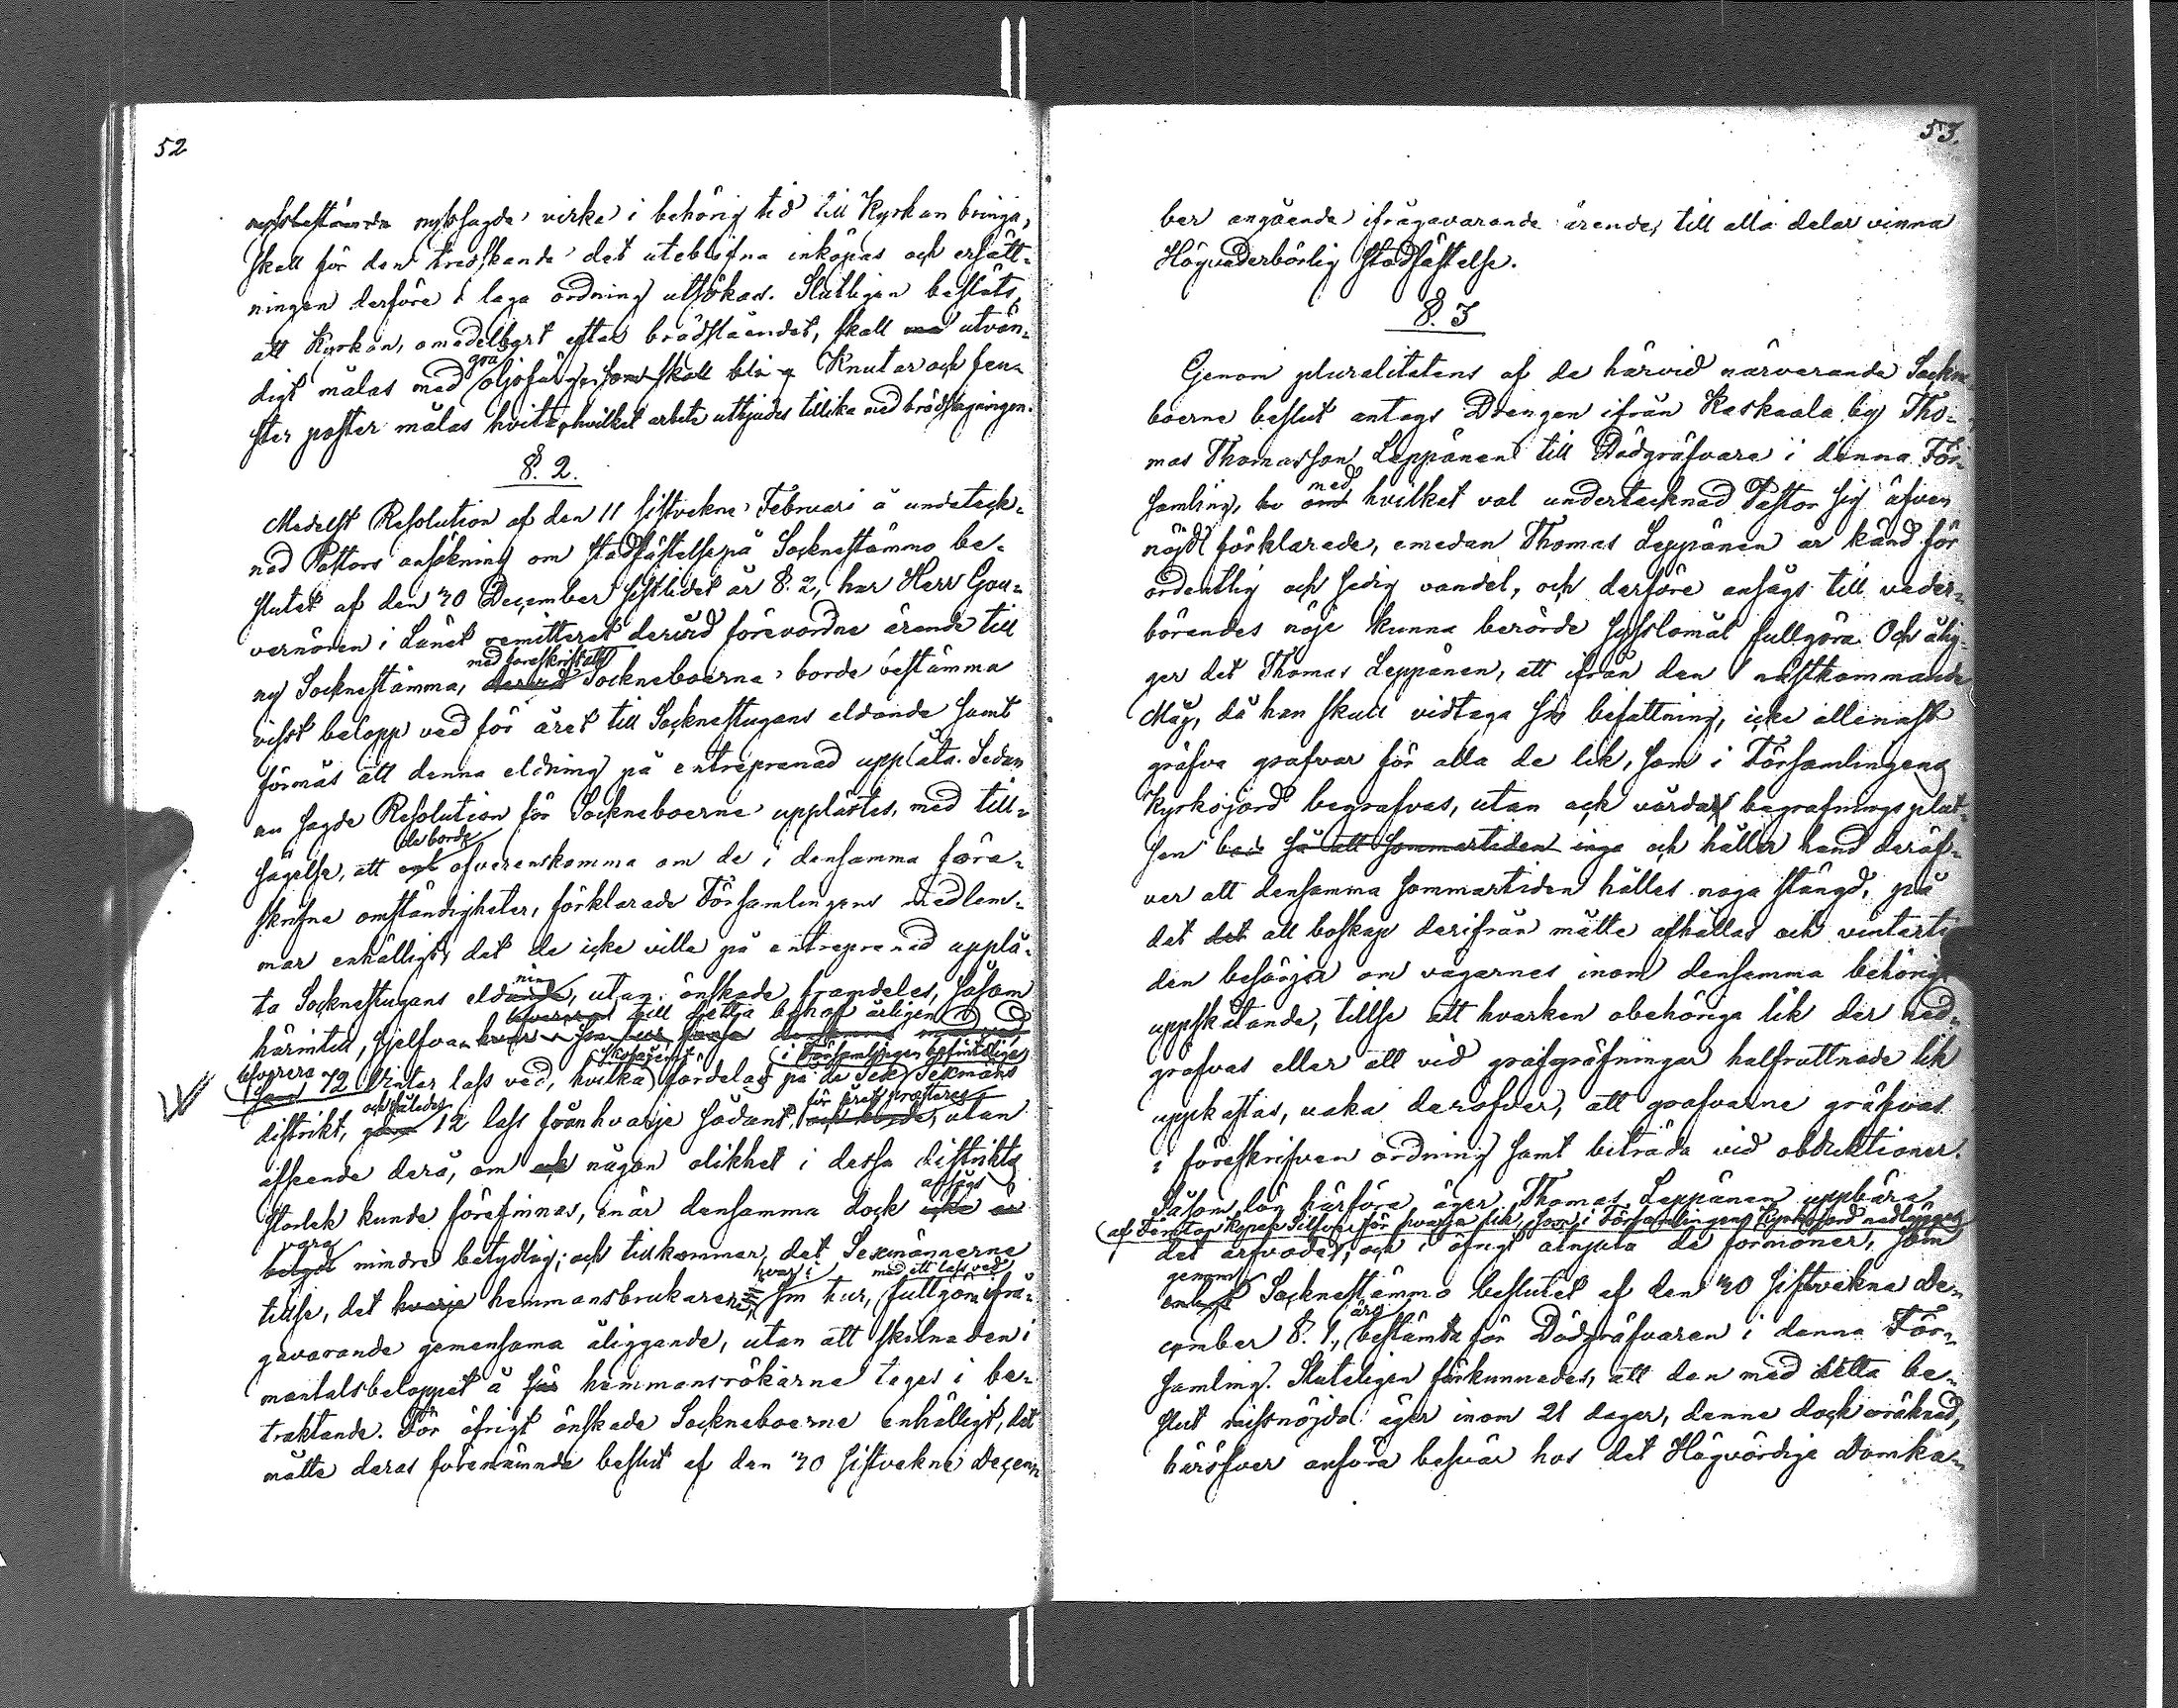 52
nyssbestämda nyssagde virke i behörig tid till Kyrkan bringa,
skall för den tredskande det uteblifna inköpas och ersätt-
ningen derföre i laga ordning utsökas. Slutligen beslöts,
att Kyrkan, omedelbart efter brädslåendet, skall utvän-
grå
digt målas med oljefärg, som skall bli Knutar och fen-
ster poster målas hvita, hvilket arbete utbjudes tillika med brädslagningen.
§. 2.
Medelst Resolution af den 11 sistvekne Februari å underteck-
nad Pastors ansökning om stadfästelse på Sockenstämmo be-
slutet af den 30 December sistlidet år §. 2, har Herr Gou-
vernören i Länet remitterat derwid förevordne ärende till
med föreskrift att
ny Sockenstämma, derwid Sockneboerne borde bestämma
visst belopp ved för året till Socknestugans eldande samt
förmås att denna eldning på entreprenad upplåta. Sedan
nu sagde Resolution för Sockneboerne upplästes, med till-
de borde
sägelse, att öfverenskomma om de i densamma före-
skrifne omständigheter, förklarade Församlingens medlem-
mar enhälligt, det de icke ville på entreprenad upplå-
ning
ta Socknestugans eldande, utan önskade framdeles, såsom
till detta behof årligen
härintill, sjelfva
i Församlingen befintliga
lefverera 72 Vinter lass ved, hvilka fördelas på de sex Sexmans
och således för årets
distrikt, 12 lass från hvarje sådant, utan
afseende derå, om någon olikhet i dessa distrikts
ansågs
storlek kunde förefinnas, enär densamma dock icke
vara
mindre betydlig; och tillkommer det Sexmännerne
hvar i med ett lass ved
tillse, det hvarje hemmansbrukare sin tur, fullgör ifrå-
gavarande gemensama åliggande, utan att skilnaden i
mantalsbeloppet å hemmansrökarne tages i be-
traktande. För öfrigt önskade Sockneboerne enhälligt, det
måtte deras förenämnde beslut af den 30 sistvekne Decem-
53.
ber angående ifrågavarande ärende, till alla delar vinna
Högvederbörlig stadfästelse.
§. 3
Genom pluralitetens af de härvid närverande Sockne
boerne beslut antogs Drengen ifrån Kaskaala by Tho-
mas Thomasson Leppänen till Dödgräfvare i denna För-
med
samling, om hvilket val undertecknad Pastor sig äfven
nöjd förklarade, emedan Thomas Leppänen är känd för
ordentlig och sedig vandel, och derföre ansågs till veder-
börandes nöje kunna berörde sysslomål fullgöra. Och ålig-
ger det Thomas Leppänen, att ifrån den 1 nästkommande
Maj, då han skall vidtaga sin befattning, icke allenast
gräfva grafvar för alla de lik, som i Församlingens
Kyrkojord begrafvas, utan ock vårdar begrafningsplat-
sen så att sommartiden inga och håller hand deröf-
ver att densamma sommartiden hålles noga stängd, på
det det all boskap derifrån måtte afhållas och vinterti
den besörjer om vägarnes inom densamma behöriga
uppskåtande, tillse att hvarken obehöriga lik der ned-
gräfvas eller att vid grafgräfningar halfruttnade lik
uppkastas, vaka deröfver, att grafvarne gräfvas
i föreskrifven ordning samt biträda vid obduktioner.
Såsom lön härföre äger Thomas Leppänen uppbära
af Femton kopek Silfver för hvarje lik, som i Församlingens Kyrkojord nedlägges
det arfvodet, och i öfrigt åtnjuta de förmoner, som
genom
enligt Sockenstämmo beslutet af den 30 sistvekne De-
äro
cember §. 1., bestämda för Dödgräfvaren i denna För-
samling. Sluteligen förkunnades, att den med detta be-
slut missnöjda äger inom 21 dagar, denne dock oräknad,
häröfver anföra besvär hos det Högvördige Domka-